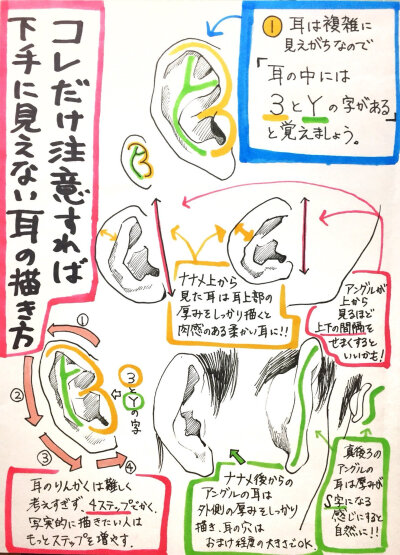 コレだけ注意すれば
下手に見えない耳の描き方
① 耳は複雑に
見えがちなので
「耳の中には
3とYの字がある」
と覚えましょう。
ナナメ上から
見た耳は耳上部の
厚みをしっかり描くと
肉感のある柔かい耳に!!
アングルが
上から
見るほど
上下の間隔を
せまくすると
いいかも!
①
②
③
④
3とYの字
耳のりんかくは難しく
考えすぎず、4ステップでかく。
写実的に描きたい人は
もっとステップを増やす。
ナナメ後からの
アングルの耳は
外側の厚みをしっかり
描き、耳の穴は
おまけ程度の大きさでOK
真後ろの
アングルの
耳は厚みが
S字になる
感じにすると
自然に!!